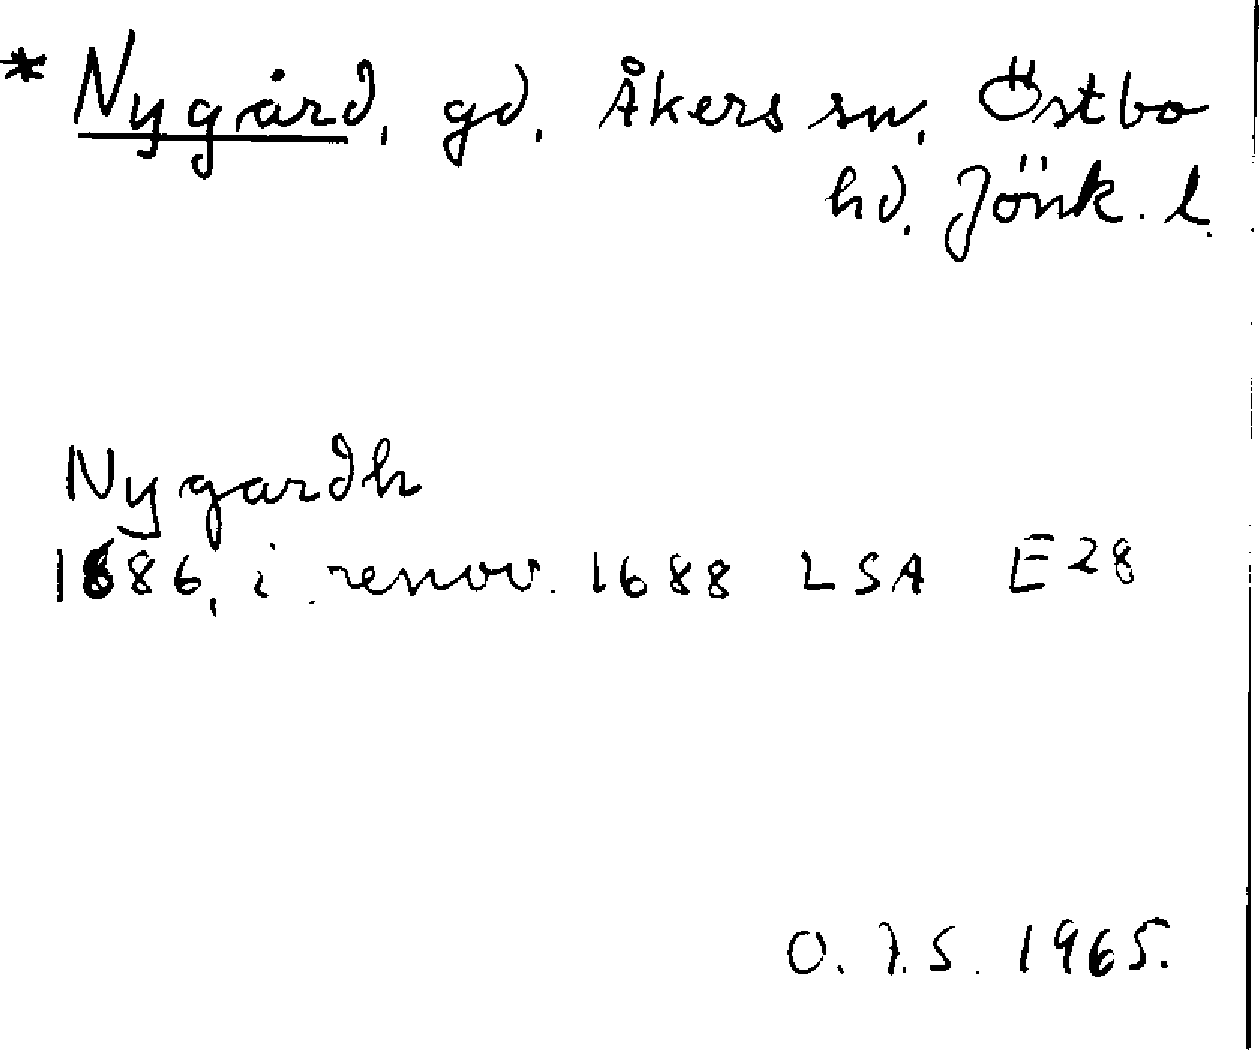 * Nygård, gd, Åkers sn, Östbo
hd, Jönk. l.
Nygardh
1686, i renov. 1688 LSA E28
O. J. S. 1965.